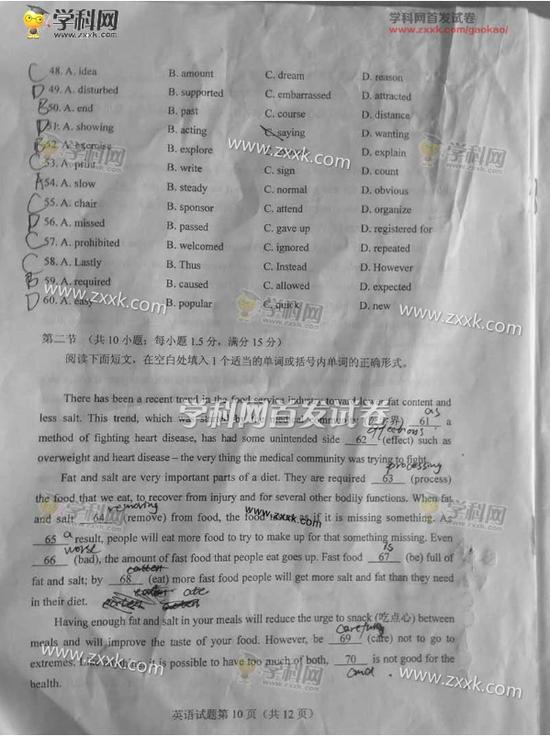 学科网
www.zxxk.com
学科网首发试卷
www.zxxk.com/gaokao/
C 48. A. idea B. amount C. dream D. reason
D 49. A. disturbed B. supported C. embarrassed D. attracted
B 50. A. end B. past C. course D. distance
D 51. A. showing B. acting C. saying D. wanting
B 52. A. exercise B. explore D. explain
C 53. A. print B. write C. sign D. count
A 54. A. slow B. steady C. normal D. obvious
C 55. A. chair B. sponsor C. attend D. organize
D 56. A. missed B. passed C. gave up D. registered for
C 57. A. prohibited B. welcomed C. ignored D. repeated
C 58. A. Lastly B. Thus C. Instead D. However
B 59. A. required B. caused C. allowed D. expected
D 60. A. easy B. popular C. quick D. new
第二节 (共10小题;每小题1.5分,满分15分)
阅读下面短文,在空白处填入1个适当的单词或括号内单词的正确形式。
There has been a recent trend in the food service industry toward lower fat content and
less salt. This trend, which was 界) 61 as a
method of fighting heart disease, has had some unintended side 62 (effect) such as
overweight and heart disease – the very thing the medical community was trying to fight.
processing
Fat and salt are very important parts of a diet. They are required 63 (process)
the food that we eat, to recover from injury and for several other bodily functions. When fat
removing
and salt 64 (remove) from food, the food as if it is missing something. As
65 a result, people will eat more food to try to make up for that something missing. Even
worse is
66 (bad), the amount of fast food that people eat goes up. Fast food 67 (be) full of
fat and salt; by 68 (eat) more fast food people will get more salt and fat than they need
in their diet. ate
Having enough fat and salt in your meals will reduce the urge to snack (吃点心) between
careful
meals and will improve the taste of your food. However, be 69 (care) not to go to
extremes. it is possible to have too much of both, 70 is not good for the
health. and
英语试题第10页(共12页)
学科网首发试卷
www.zxxk.com